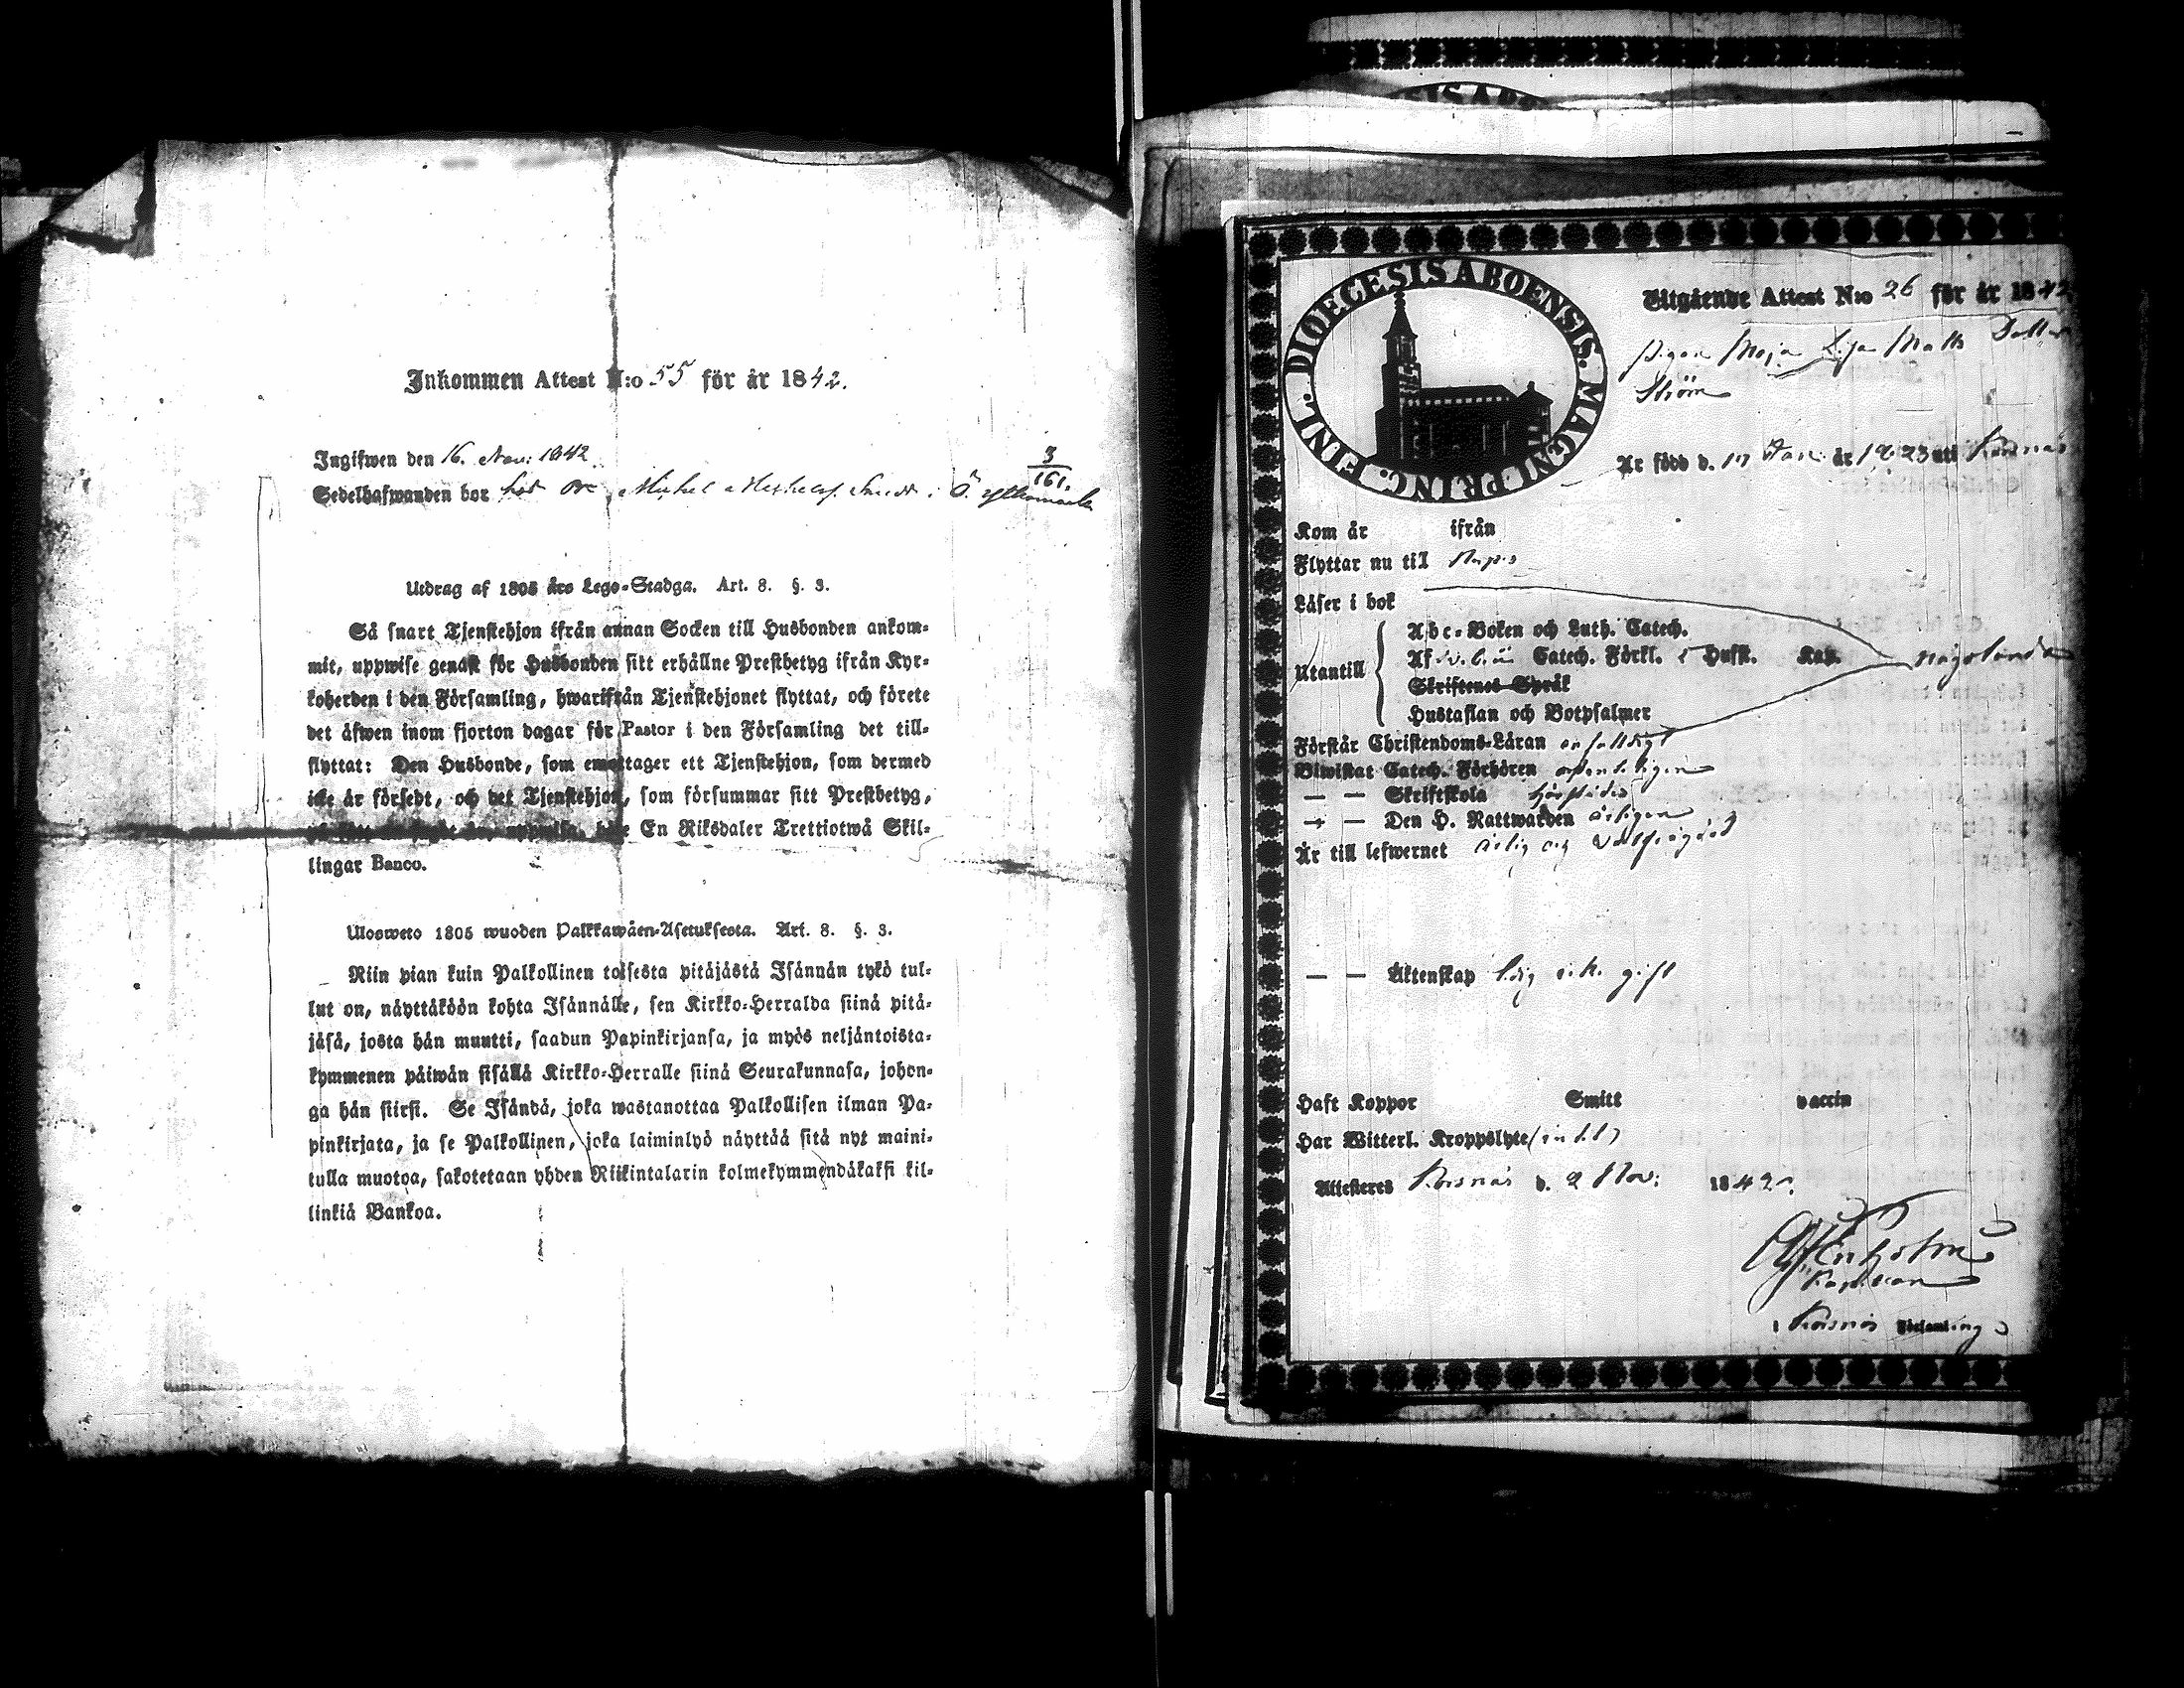 Inkommen Attest N:o 55 för år 1842.
Ingifwen den 16. Nov: 1842.
3
161.
Sedelhafwanden bor hos Michel i Ö.
Utdrag af 1805 års Lego-Stadga. Art. 8. §. 3.
Så snart Tjenstehjon ifrån annan Socken till Husbonden ankom-
mit, uppwise genast för Husbonden sitt erhållne Prestbetyg ifrån Kyr-
koherden i den Församling, hwarifrån Tjenstehjonet flyttat, och förete
det äfwen inom fjorton dagar för Pastor i den Församling det till-
flyttat: Den Husbonde, som emottager ett Tjenstehjon, som dermed
icke är försedt, och det Tjenstehjon, som försummar sitt Prestbetyg,
på sätt uppwisa, böte En Riksdaler Trettiotwå Skil-
lingar Banco.
Ulosweto 1805 wuoden Palkkawäen-Asetuksesta. Art. 8. §. 3.
Niin pian kuin Palkollinen toisesta pitäjästä Isännän tykö tul-
lut on, näyttäköön kohta Isännälle, sen Kirkko-Herralda siinä pitä-
jäsä, josta hän muutti, saadun Papinkirjansa, ja myös neljäntoista-
kymmenen päiwän sisällä Kirkko-Herralle siinä Seurakunnasa, johon-
ga hän siirsi. Se Isändä, joka wastanottaa Palkollisen ilman Pa-
pinkirjata, ja se Palkollinen, joka laiminlyö näyttää sitä nyt maini-
tulla muotoa, sakotetaan yhden Riikintalarin kolmekymmendäkaksi kil-
linkiä Bankoa.
DIOECESIS ABOENSIS. MAGNI PRINC. FINL.
Utgående Attest N:o 26 för år 1842
Pigan Maja Lisa Matts Dotter
Ström
Är född d. 17 Jan: år 1823 uti Korsnäs
Kom år ifrån
Flyttar nu till
Läser i bok
Utantill
Abc-Boken och Luth. Catech.
Af Catech. Förkl. i Hufst. Kap.
Skriftenes Språk
Hustaflan och Botpsalmer
någorlunda
Förstår Christendoms-Läran enfaldigt
Biwistat Catech. Förhören ordenteligen
— — Skriftskola
— — Den H. Nattwarden årligen
Är till lefwernet ärlig och välfrägdad
— — Äktenskap ledig och gift
Haft Koppor Smitt vaccin
Har Witterl. Kroppslyte
Attesteres Korsnäs d. 2 Nov: 1842.
Kapellan
i Korsnäs Församling